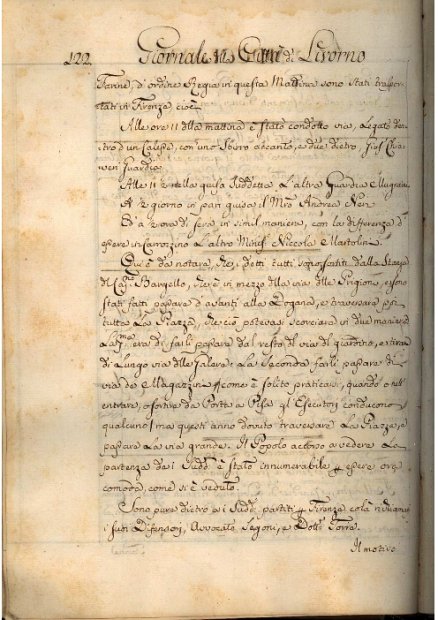 122. Giornale della Città di Livorno
Farine, d'ordine Regia in questa Mattina sono stati traspor
tati in Firenza cioè
Alle ore 11 della mattina è stato condotto via, Legato den
tro d'un Calesse, con uno Sbirro accanto, e due dietro,
Guardia
Alle 11 2 nella guisa suddetta L'altra Guardia
A 2 giorno in pari guisa il Mro Andrea Neri
Ed a 2 ora di sera in simil maniera, con la differenza d'
essere in Carrozzino L'altro Minist. Niccola Martolini
Qui è da notarsi, che i detti tutti sono sortiti dalla Stanza
del Capno Bargello, che è in mezzo della via delle Prigioni, e sono
stati fatti passare d'avanti alla Dogana, e traversare per
tutta La Piazza, che ciò potevasi scorciare in due maniere
La Pma era di farli passare dal resto di via di quartino, e tirare
di Lungo via delle Galere: e La Seconda farli passare di
via de Magazzini come è solito praticarsi, quando o nell'
entrare, o sortire da Porta a Pisa gl'Esecutori conducono
qualcuno; ma questi anno dovuto traversare La Piazza, e
passare La via grande. Il Popolo accorso a vedere La
partenza dei Sudd. è stato innumerabile p essere ore
comoda, come si è veduto.
Sono pure dietro ai Sudd. partiti p Firenza colà
i suoi Difensori, Avvocato Segoni, e Dott. Torre.
Il motivo